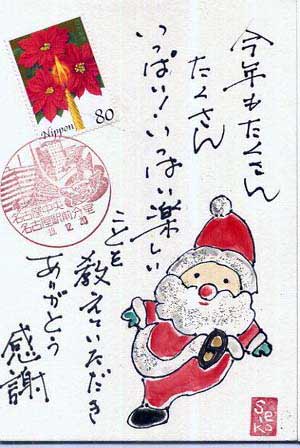 今年もたくさん
たくさん
いっぱい!いっぱい楽しい
ことを
教えていただき
ありがとう
感謝
Nippon 80
名古屋中央
名古屋駅前分室
12
Sieko